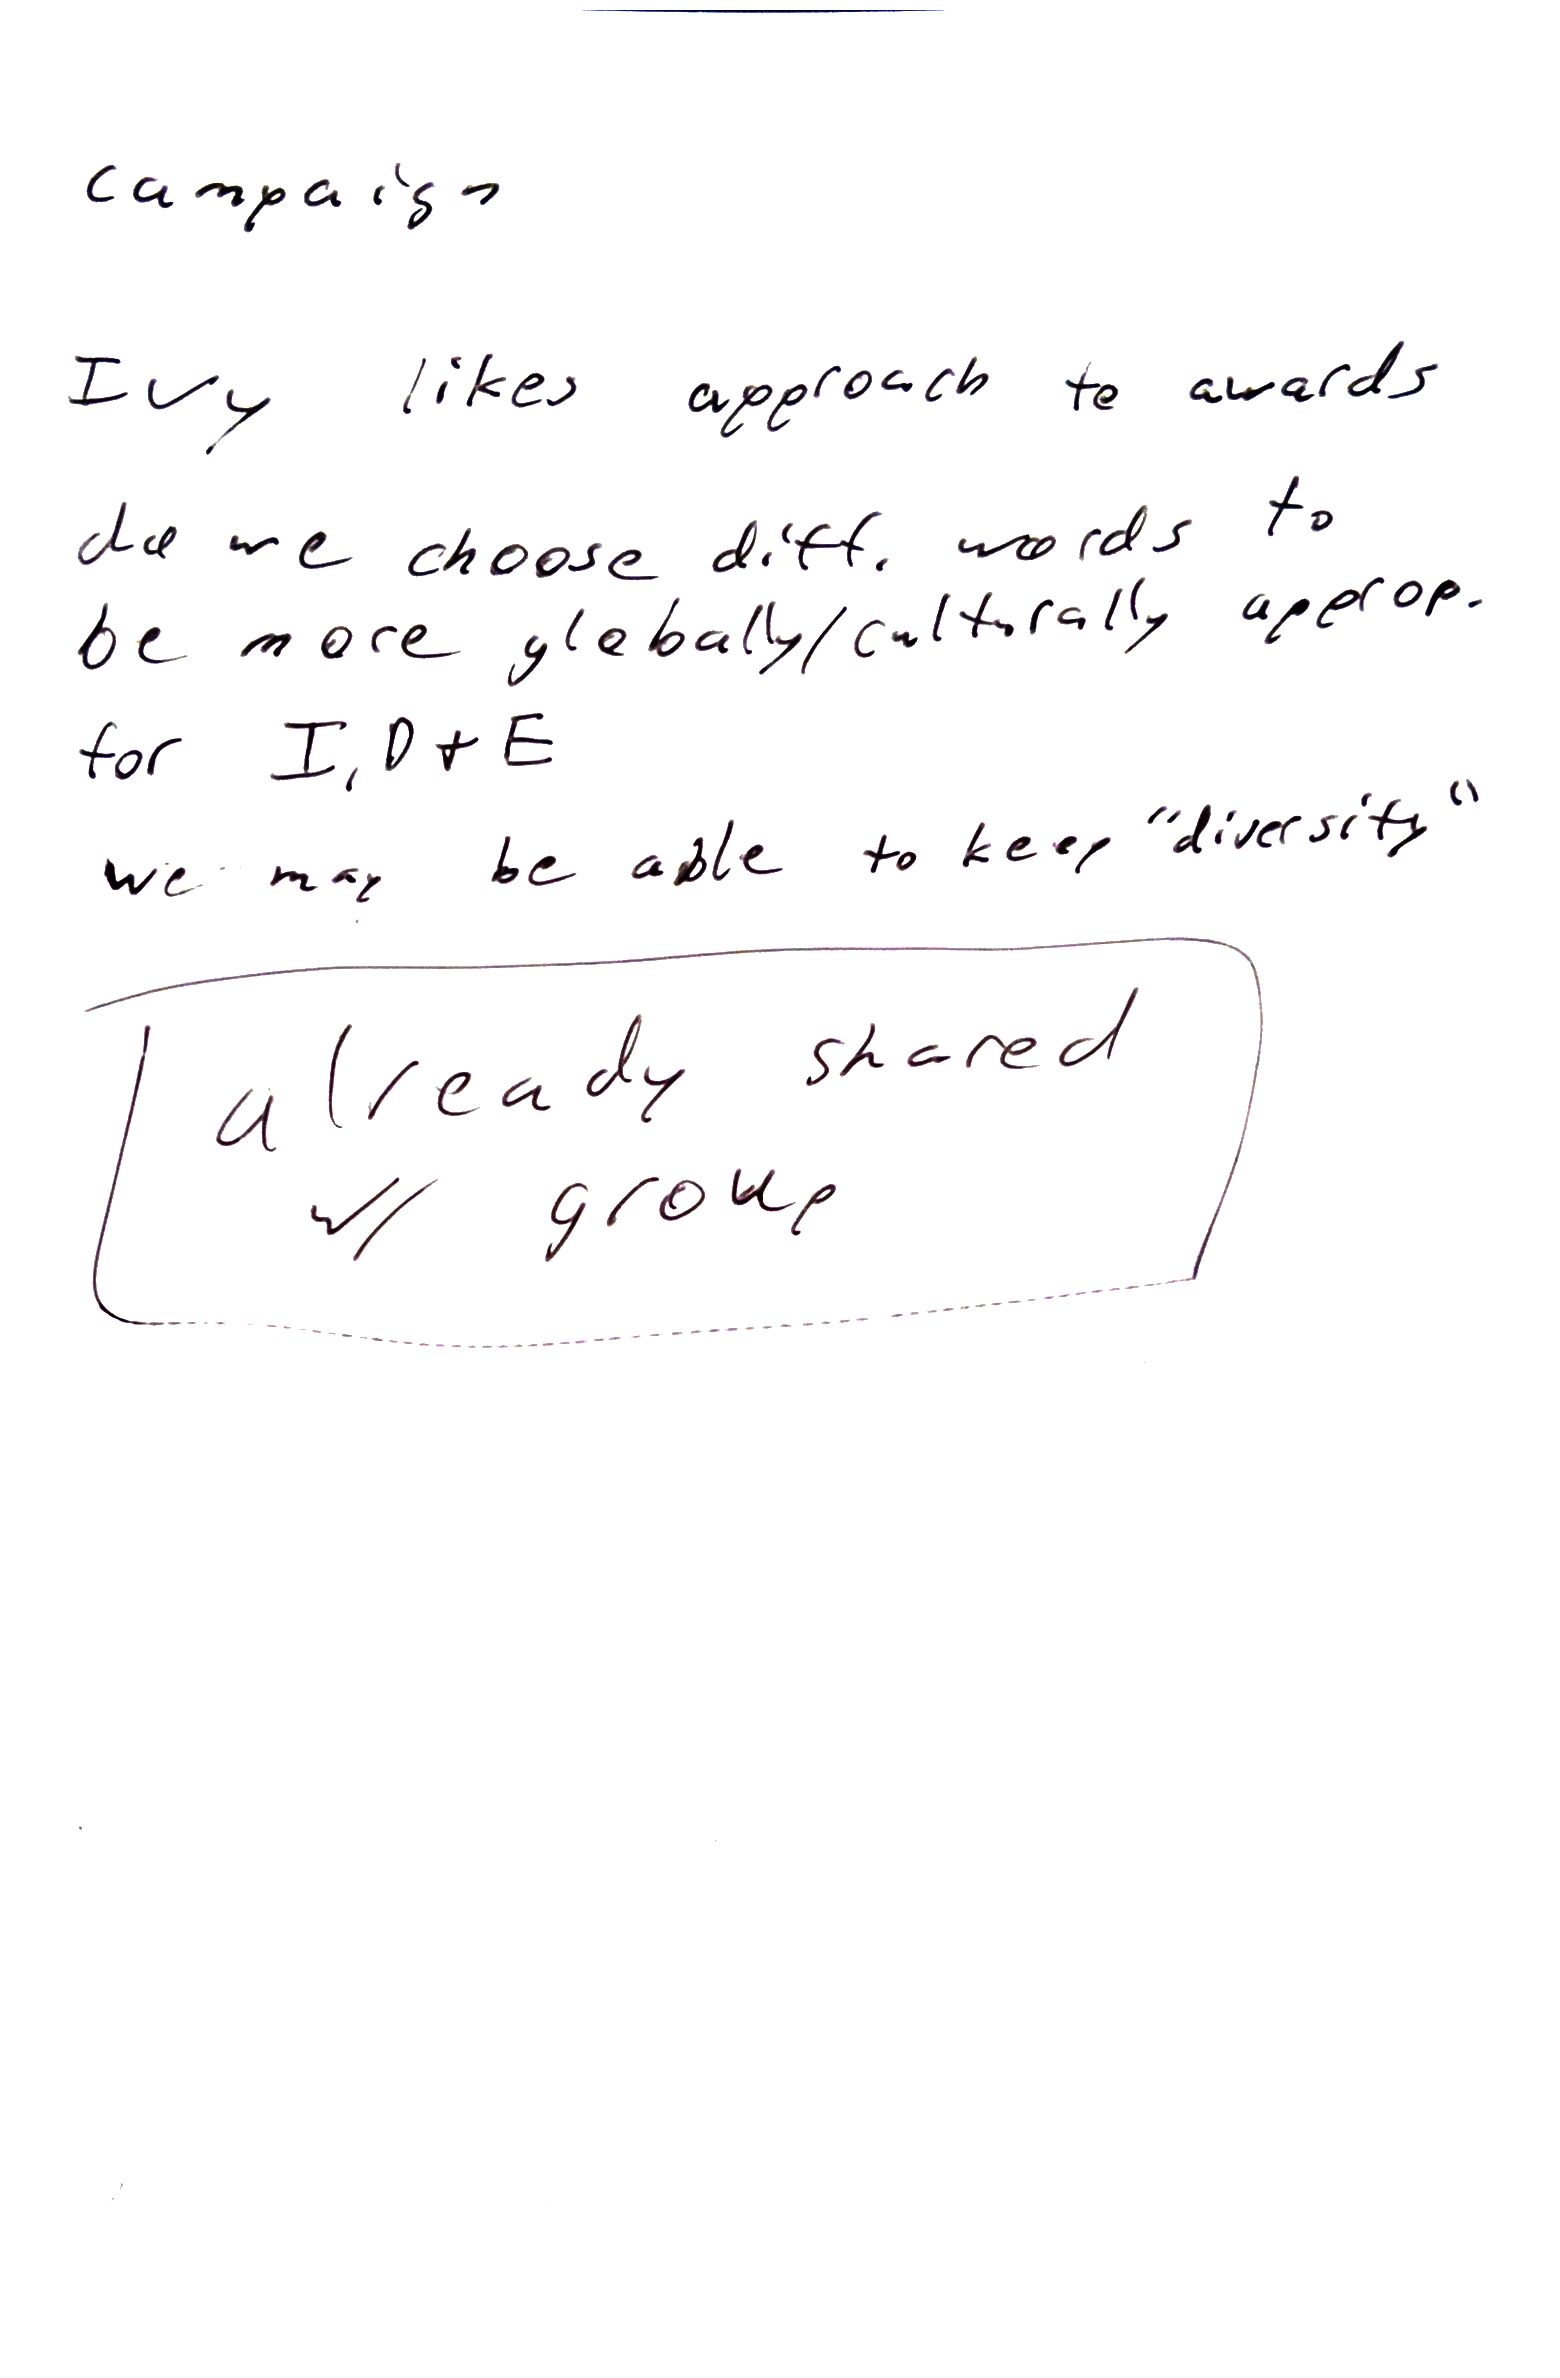 campaign
Ivy likes approach to awards
do we choose diff. words to
be more globally/culturally approp.
for I, D + E
we may be able to keep "diversity"
already shared
w/ group